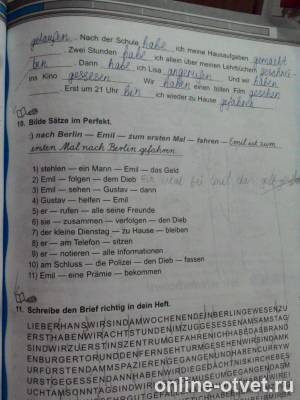 gelaufen. Nach der Schule habe ich meine Hausaufgaben gemacht
. Zwei Stunden habe ich allein über meinen Lehrbüchern
. Dann habe ich Lisa angerufen. Und wir haben
ins Kino gesessen. Wir haben einen tollen Film gesehen
. Erst um 21 Uhr bin ich wieder zu Hause gefahren
10. Bilde Sätze im Perfekt.
nach Berlin — Emil — zum ersten Mal — fahren — Emil ist zum
ersten Mal nach Berlin gefahren.
1) stehlen — ein Mann — Emil — das Geld
2) Emil — folgen — dem Dieb
3) Emil — sehen — Gustav — dann
4) Gustav — helfen — Emil
5) er — rufen — alle seine Freunde
6) sie — zusammen — verfolgen — den Dieb
7) der kleine Dienstag — zu Hause — bleiben
8) er — am Telefon — sitzen
9) er — notieren — alle Informationen
10) am Schluss — die Polizei — den Dieb — fassen
11) Emil — eine Prämie — bekommen
11. Schreibe den Brief richtig in dein Heft.
LIEBERHANSWIRSINDAMWOCHENENDEINBERLINGEWESENZU
ERSTHABENWIRACHTSTUNDENIMZUGGESESSENAMSAMSTAG
SINDWIRZUERSTINSZENTRUMGEFAHRENICHHABEDASBRAND
ENBURGERTORUNDDENFERNSEHTURMGESEHENWIRSINDAM
URFÜRSTENDAMMSPAZIERENGEGANGENUNDHABENCURRYW
URSTGEGESSENDANNHABENWIRDIEGEDÄCHTNISKIRCHEBES
online-otvet.ru